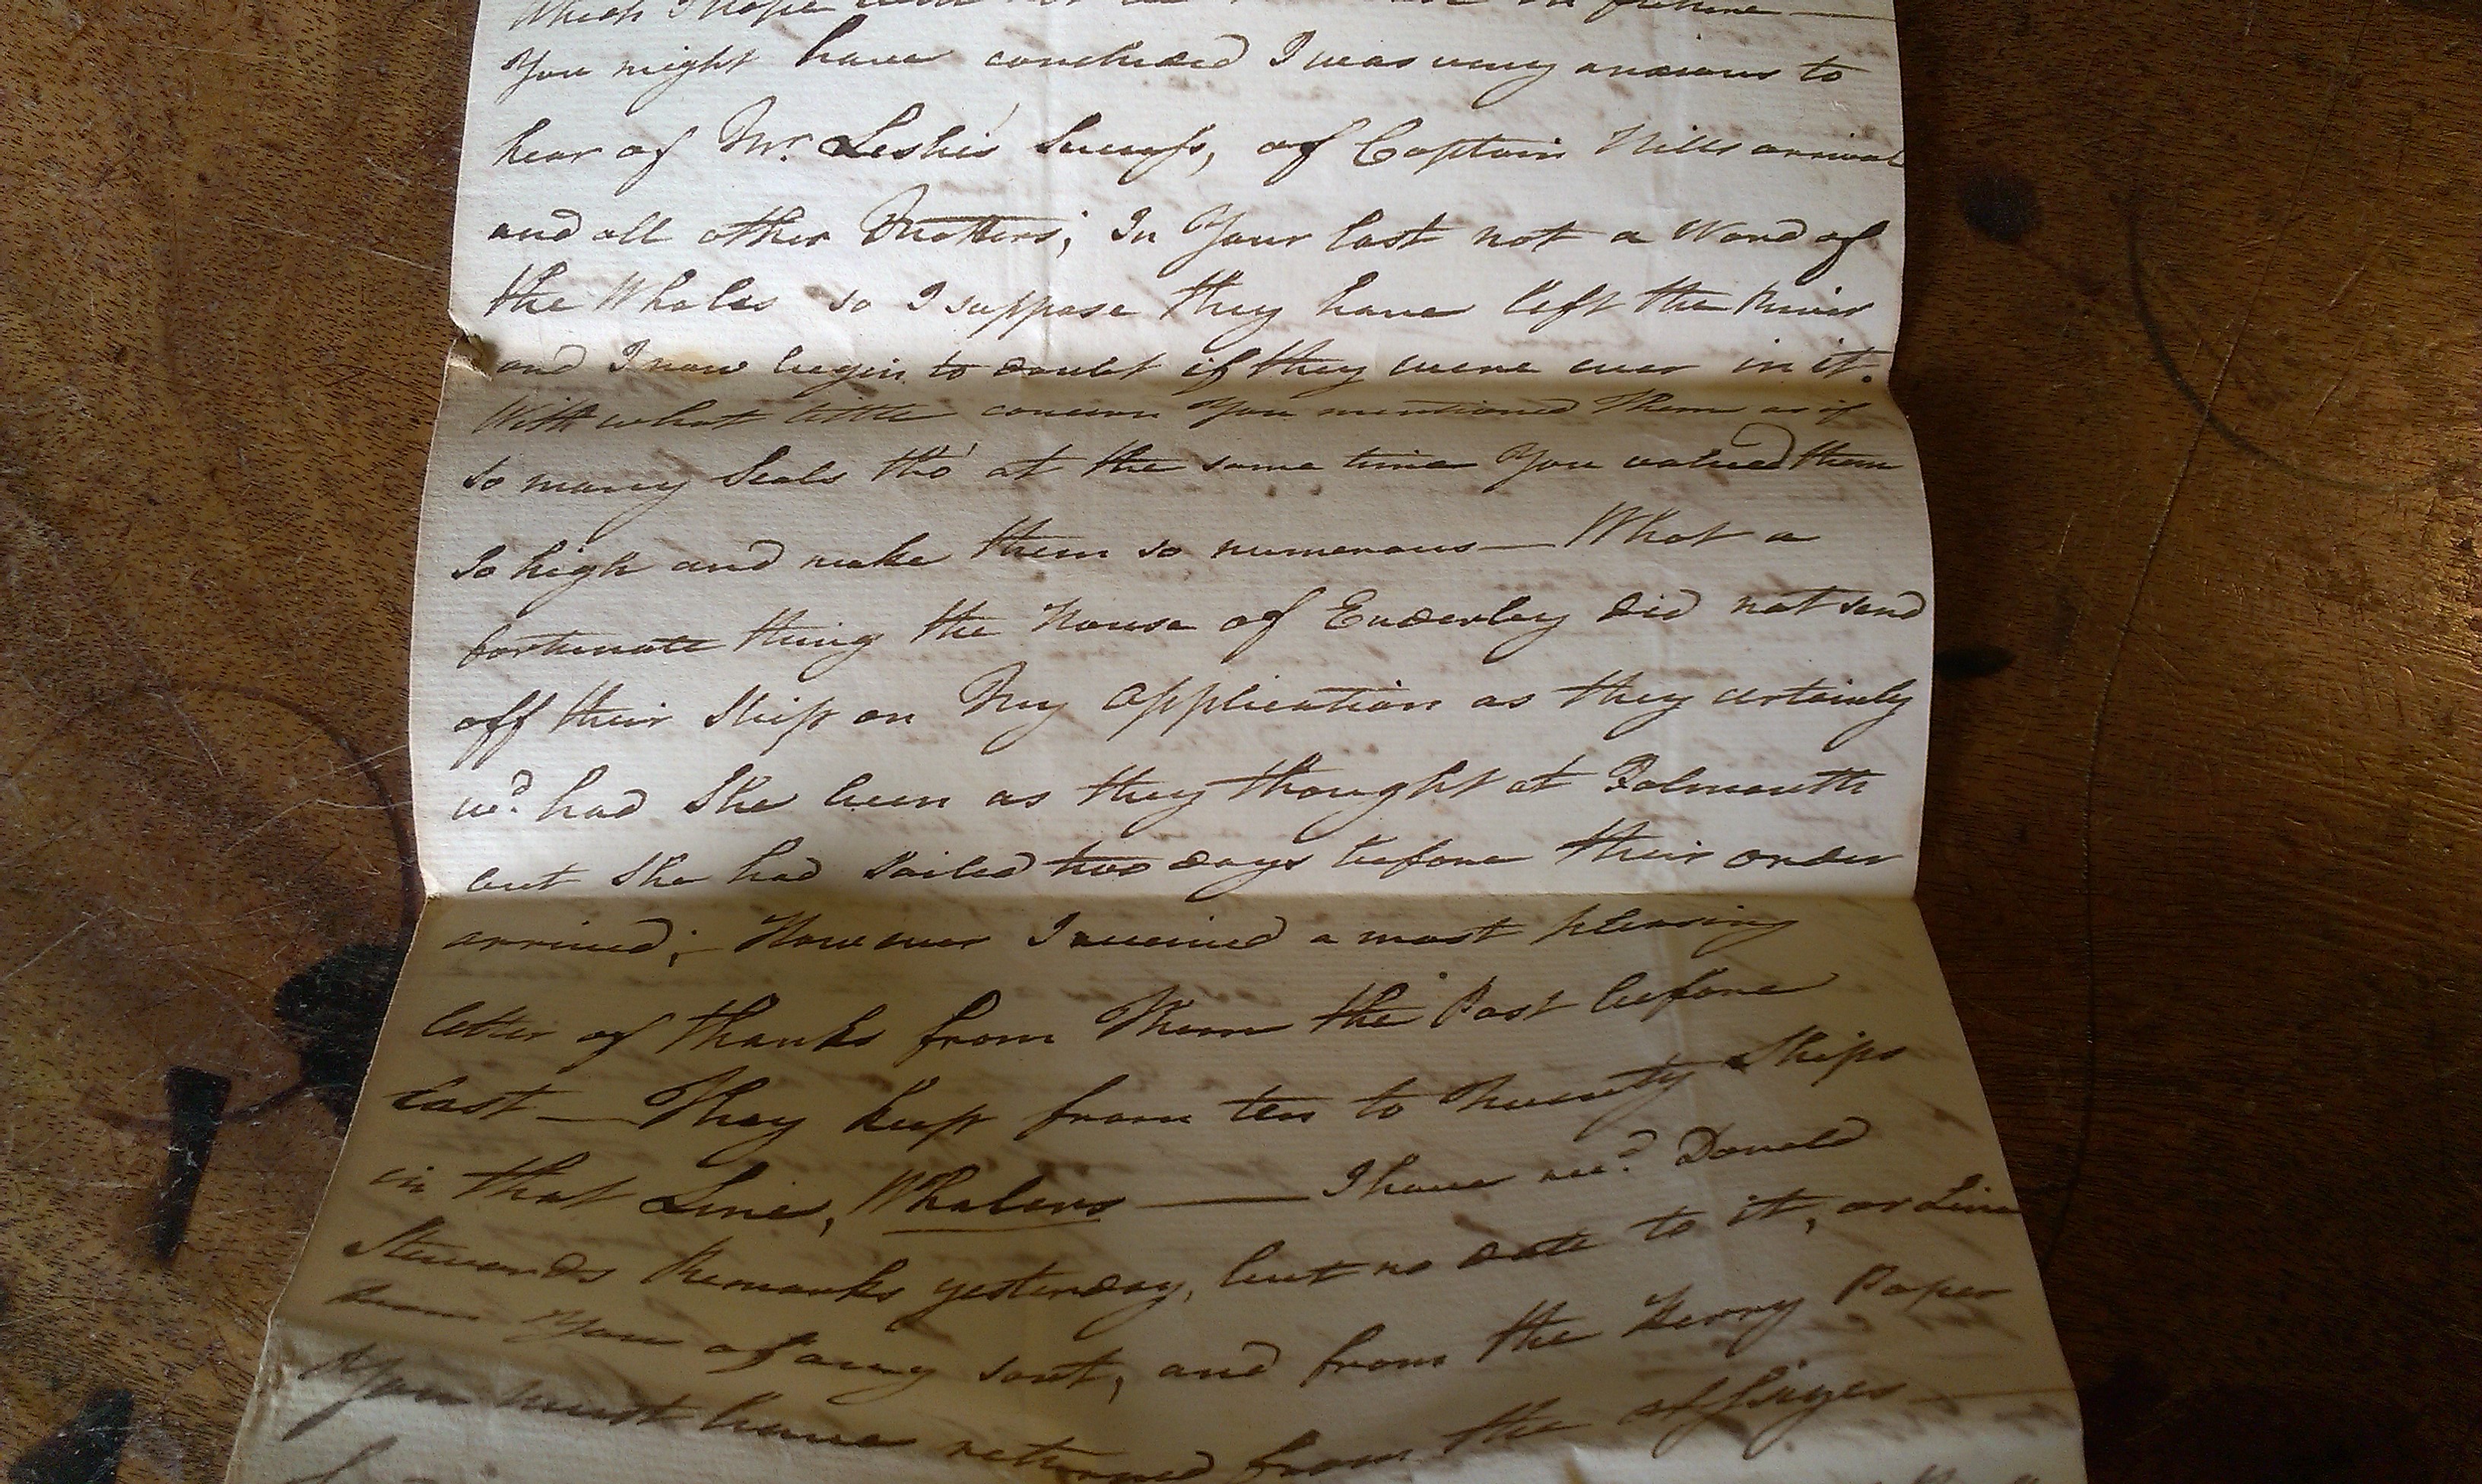 which I hope will not be in future —
You might have concluded I was very anxious to
hear of Mr. Leslie's Success, of Captain Hills arrival
and all other Matters; In Your last not a Word of
the Whales so I suppose they have left the River
and I now begin to doubt if they were ever in it.
With what little concern You mentioned Them as if
so many Seals tho' at the same time You valued them
so high and make them so numerous — What a
fortunate thing the House of Enderley did not send
off their Ship on My Application as they certainly
wd. had She been as they thought at Falmouth
but She had Sailed two days before their order
arrived; — However I received a most pleasing
letter of Thanks from Them the Post before
last — They keep from ten to Twenty Ships
in that Line, Whalers — I have recd. Donald
Stewards Remarks yesterday, but no date to it, or Line
from You of any sort, and from the Kerry Paper
You must have returned from the assizes —